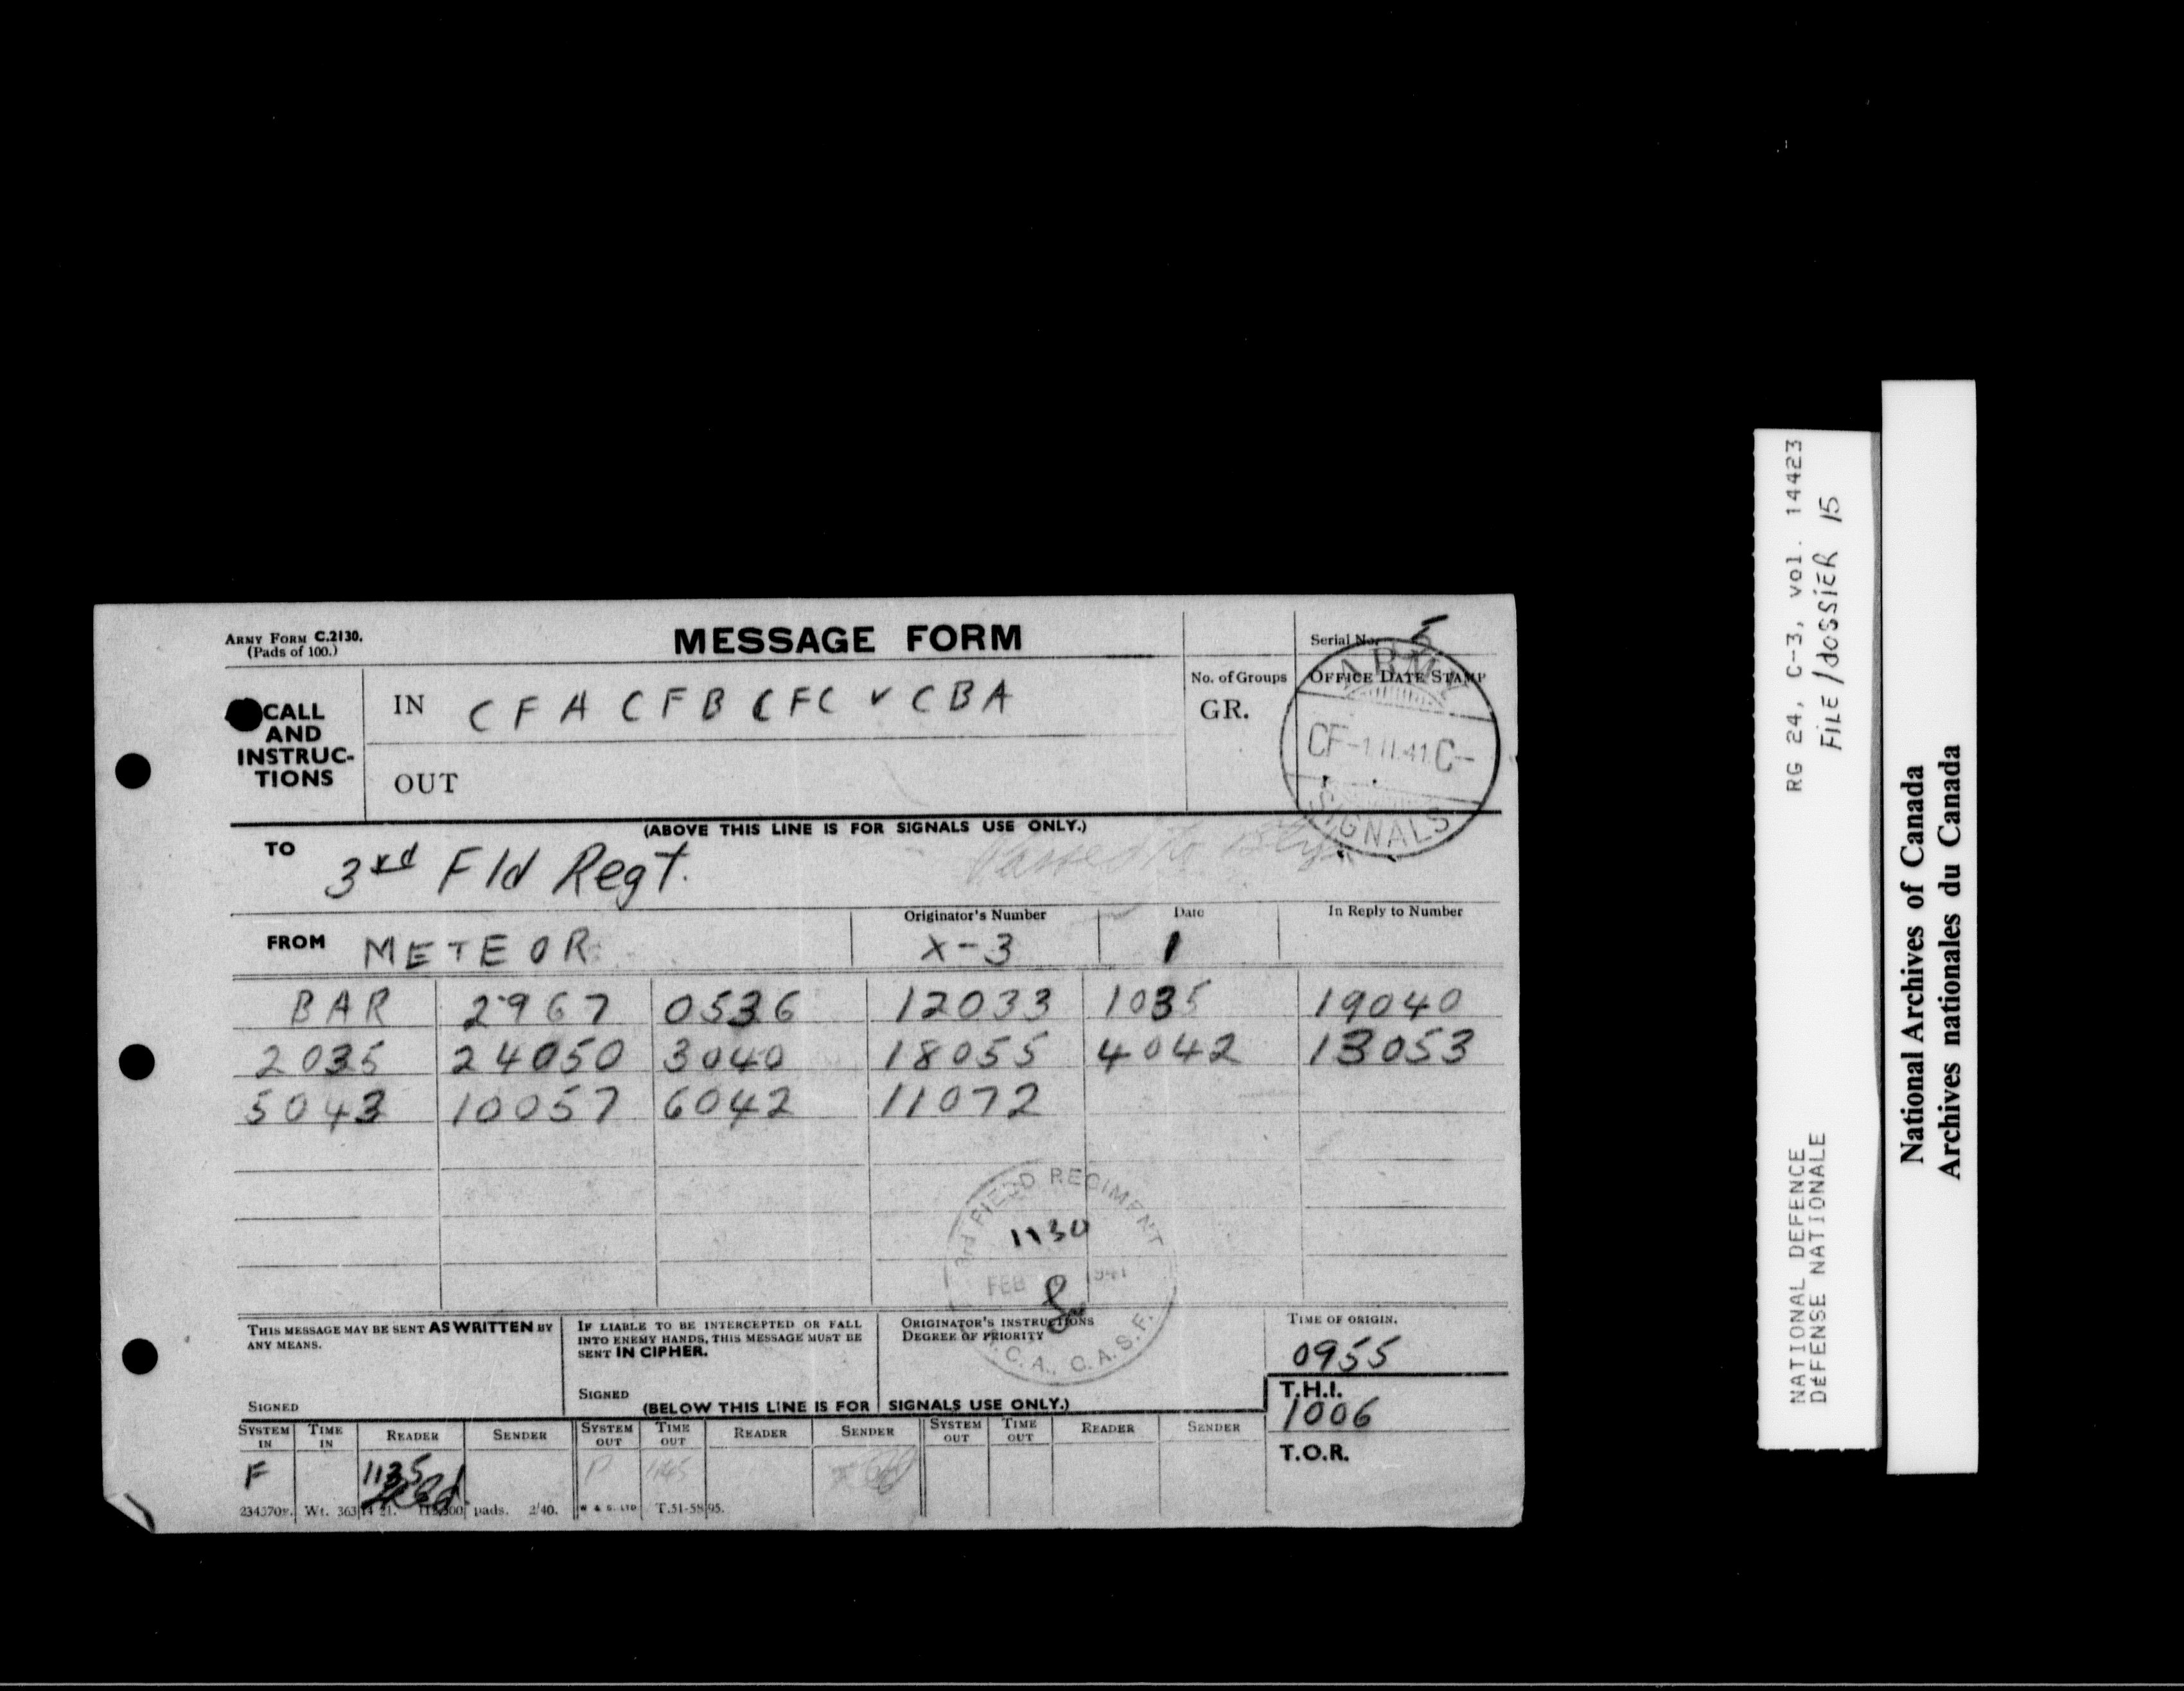 ARMY FORM C.2130.
(Pads of 100.)
MESSAGE FORM
Serial No. 5
CALL AND INSTRUC-TIONS
IN CFA CFB CFC v CBA
OUT
No. of Groups
GR.
OFFICE DATE STAMP
ARMY
CF -1.11.41 C-
SIGNALS
(ABOVE THIS LINE IS FOR SIGNALS USE ONLY.)
TO 3rd Fld Regt.
FROM METEOR
Originator's Number
X-3
Date
1
In Reply to Number
BAR 2967 0536 12033 1035 19040
2035 24050 3040 18055 4042 13053
5043 10057 6042 11072
3rd FIELD REGIMENT
1130
FEB 1941
C.A., C.A.S.F.
THIS MESSAGE MAY BE SENT AS WRITTEN BY
ANY MEANS.
SIGNED
IF LIABLE TO BE INTERCEPTED OR FALL
INTO ENEMY HANDS, THIS MESSAGE MUST BE
SENT IN CIPHER.
SIGNED
ORIGINATOR'S INSTRUCTIONS
DEGREE OF PRIORITY
TIME OF ORIGIN.
0955
T.H.I.
1006
T.O.R.
(BELOW THIS LINE IS FOR SIGNALS USE ONLY.)
SYSTEM IN TIME IN READER SENDER SYSTEM OUT TIME OUT READER SENDER SYSTEM OUT TIME OUT READER SENDER
F 1135 P 1145
pads. 2/40. W & S. LTD T.51-5895.
RG 24, C-3, vol. 14423
FILE/DOSSIER 15
NATIONAL DEFENCE
DÉFENSE NATIONALE
National Archives of Canada
Archives nationales du Canada